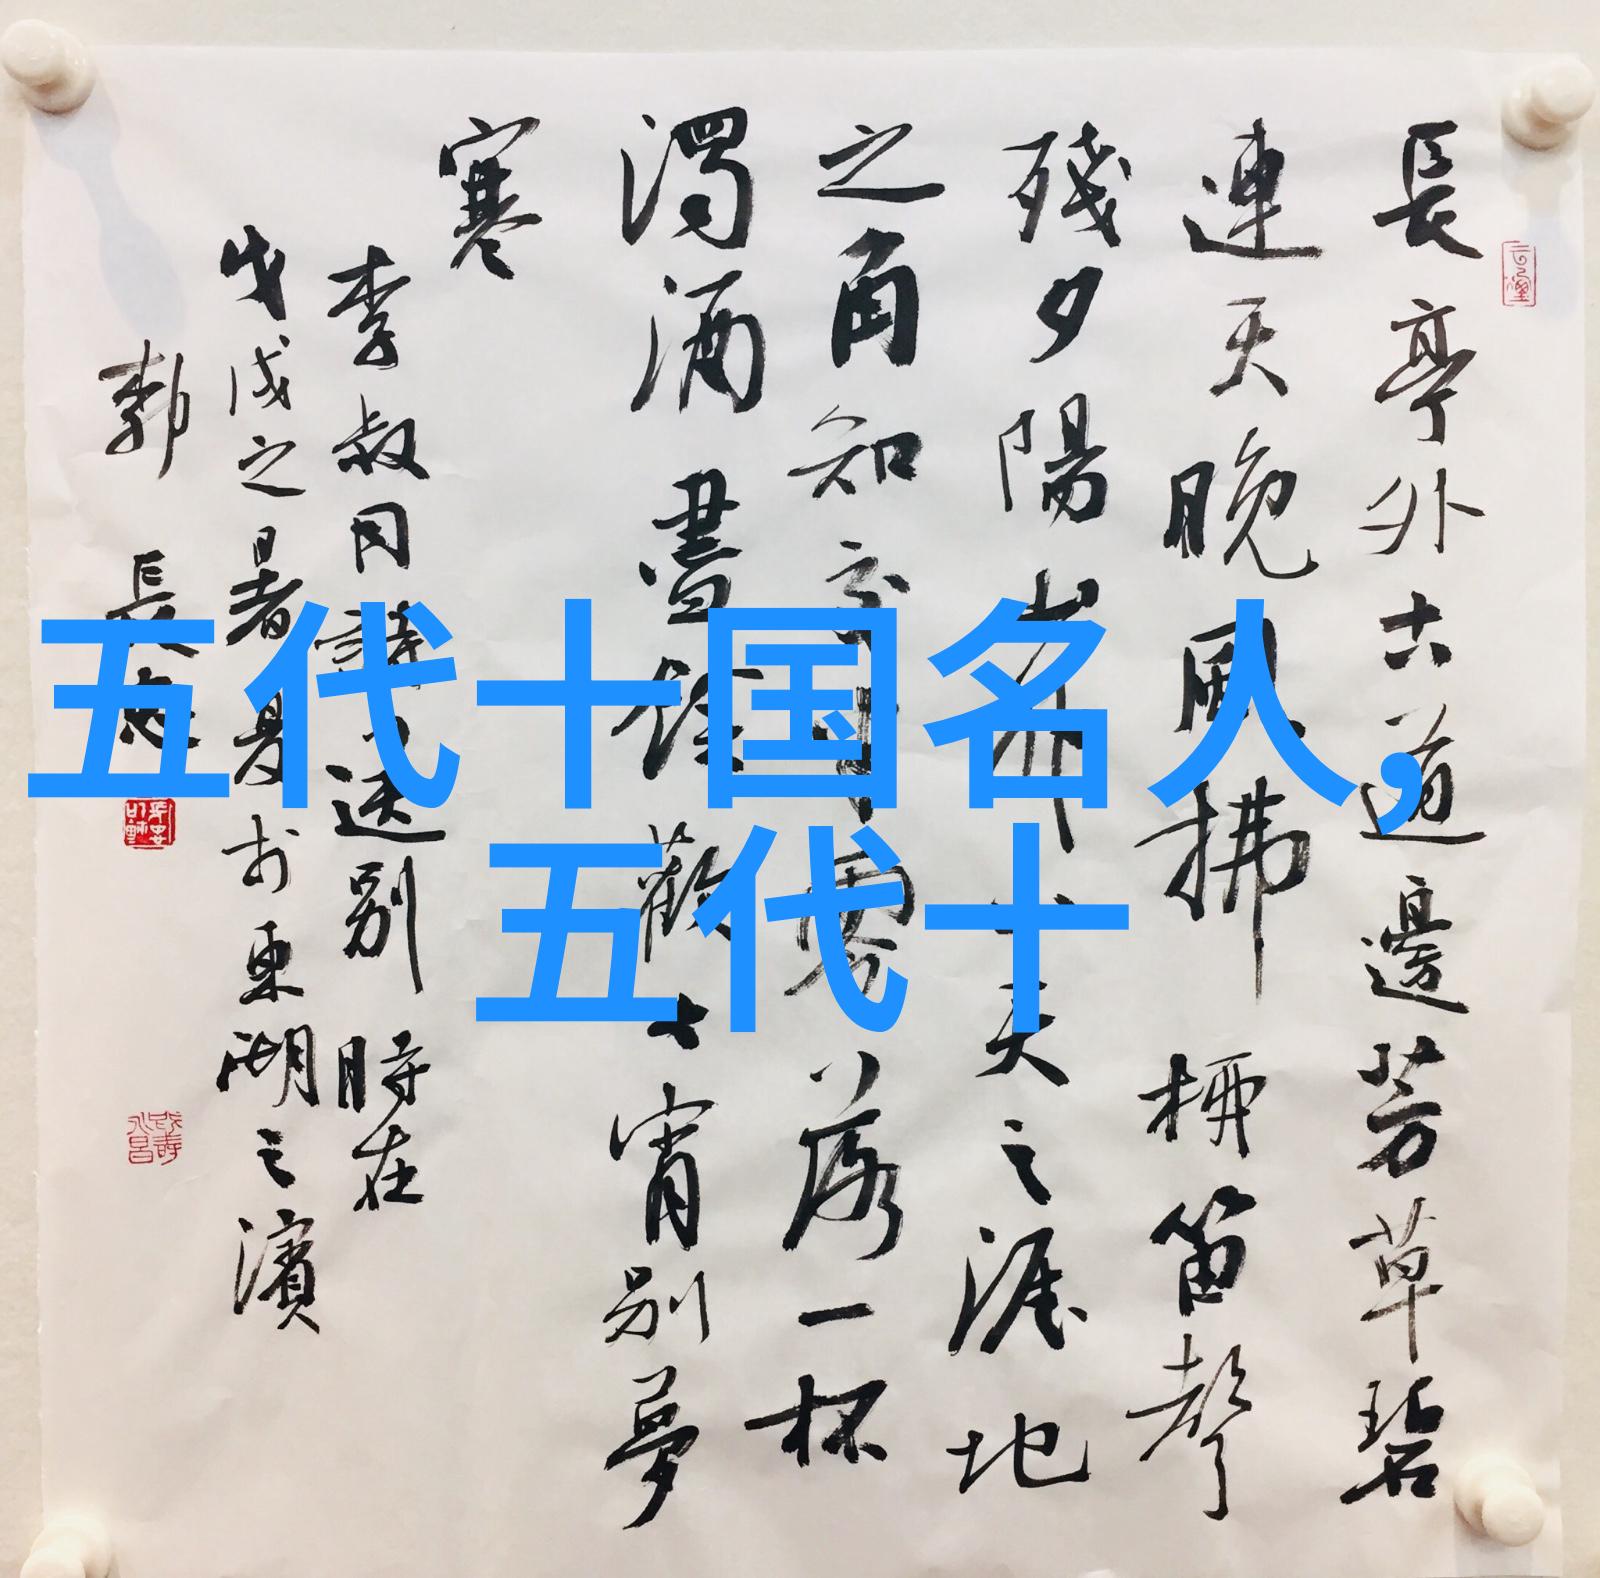 五代十国名人,
五代十
長亭外古道邊芳草碧
連天晚風拂柳笛聲
殘夕陽山外山天之涯地
之角知交半零落一杯
濁酒盡餘歡今宵別夢
寒
李叔同詩送別 時在
戊戌之暑夏於東湖之濱
長